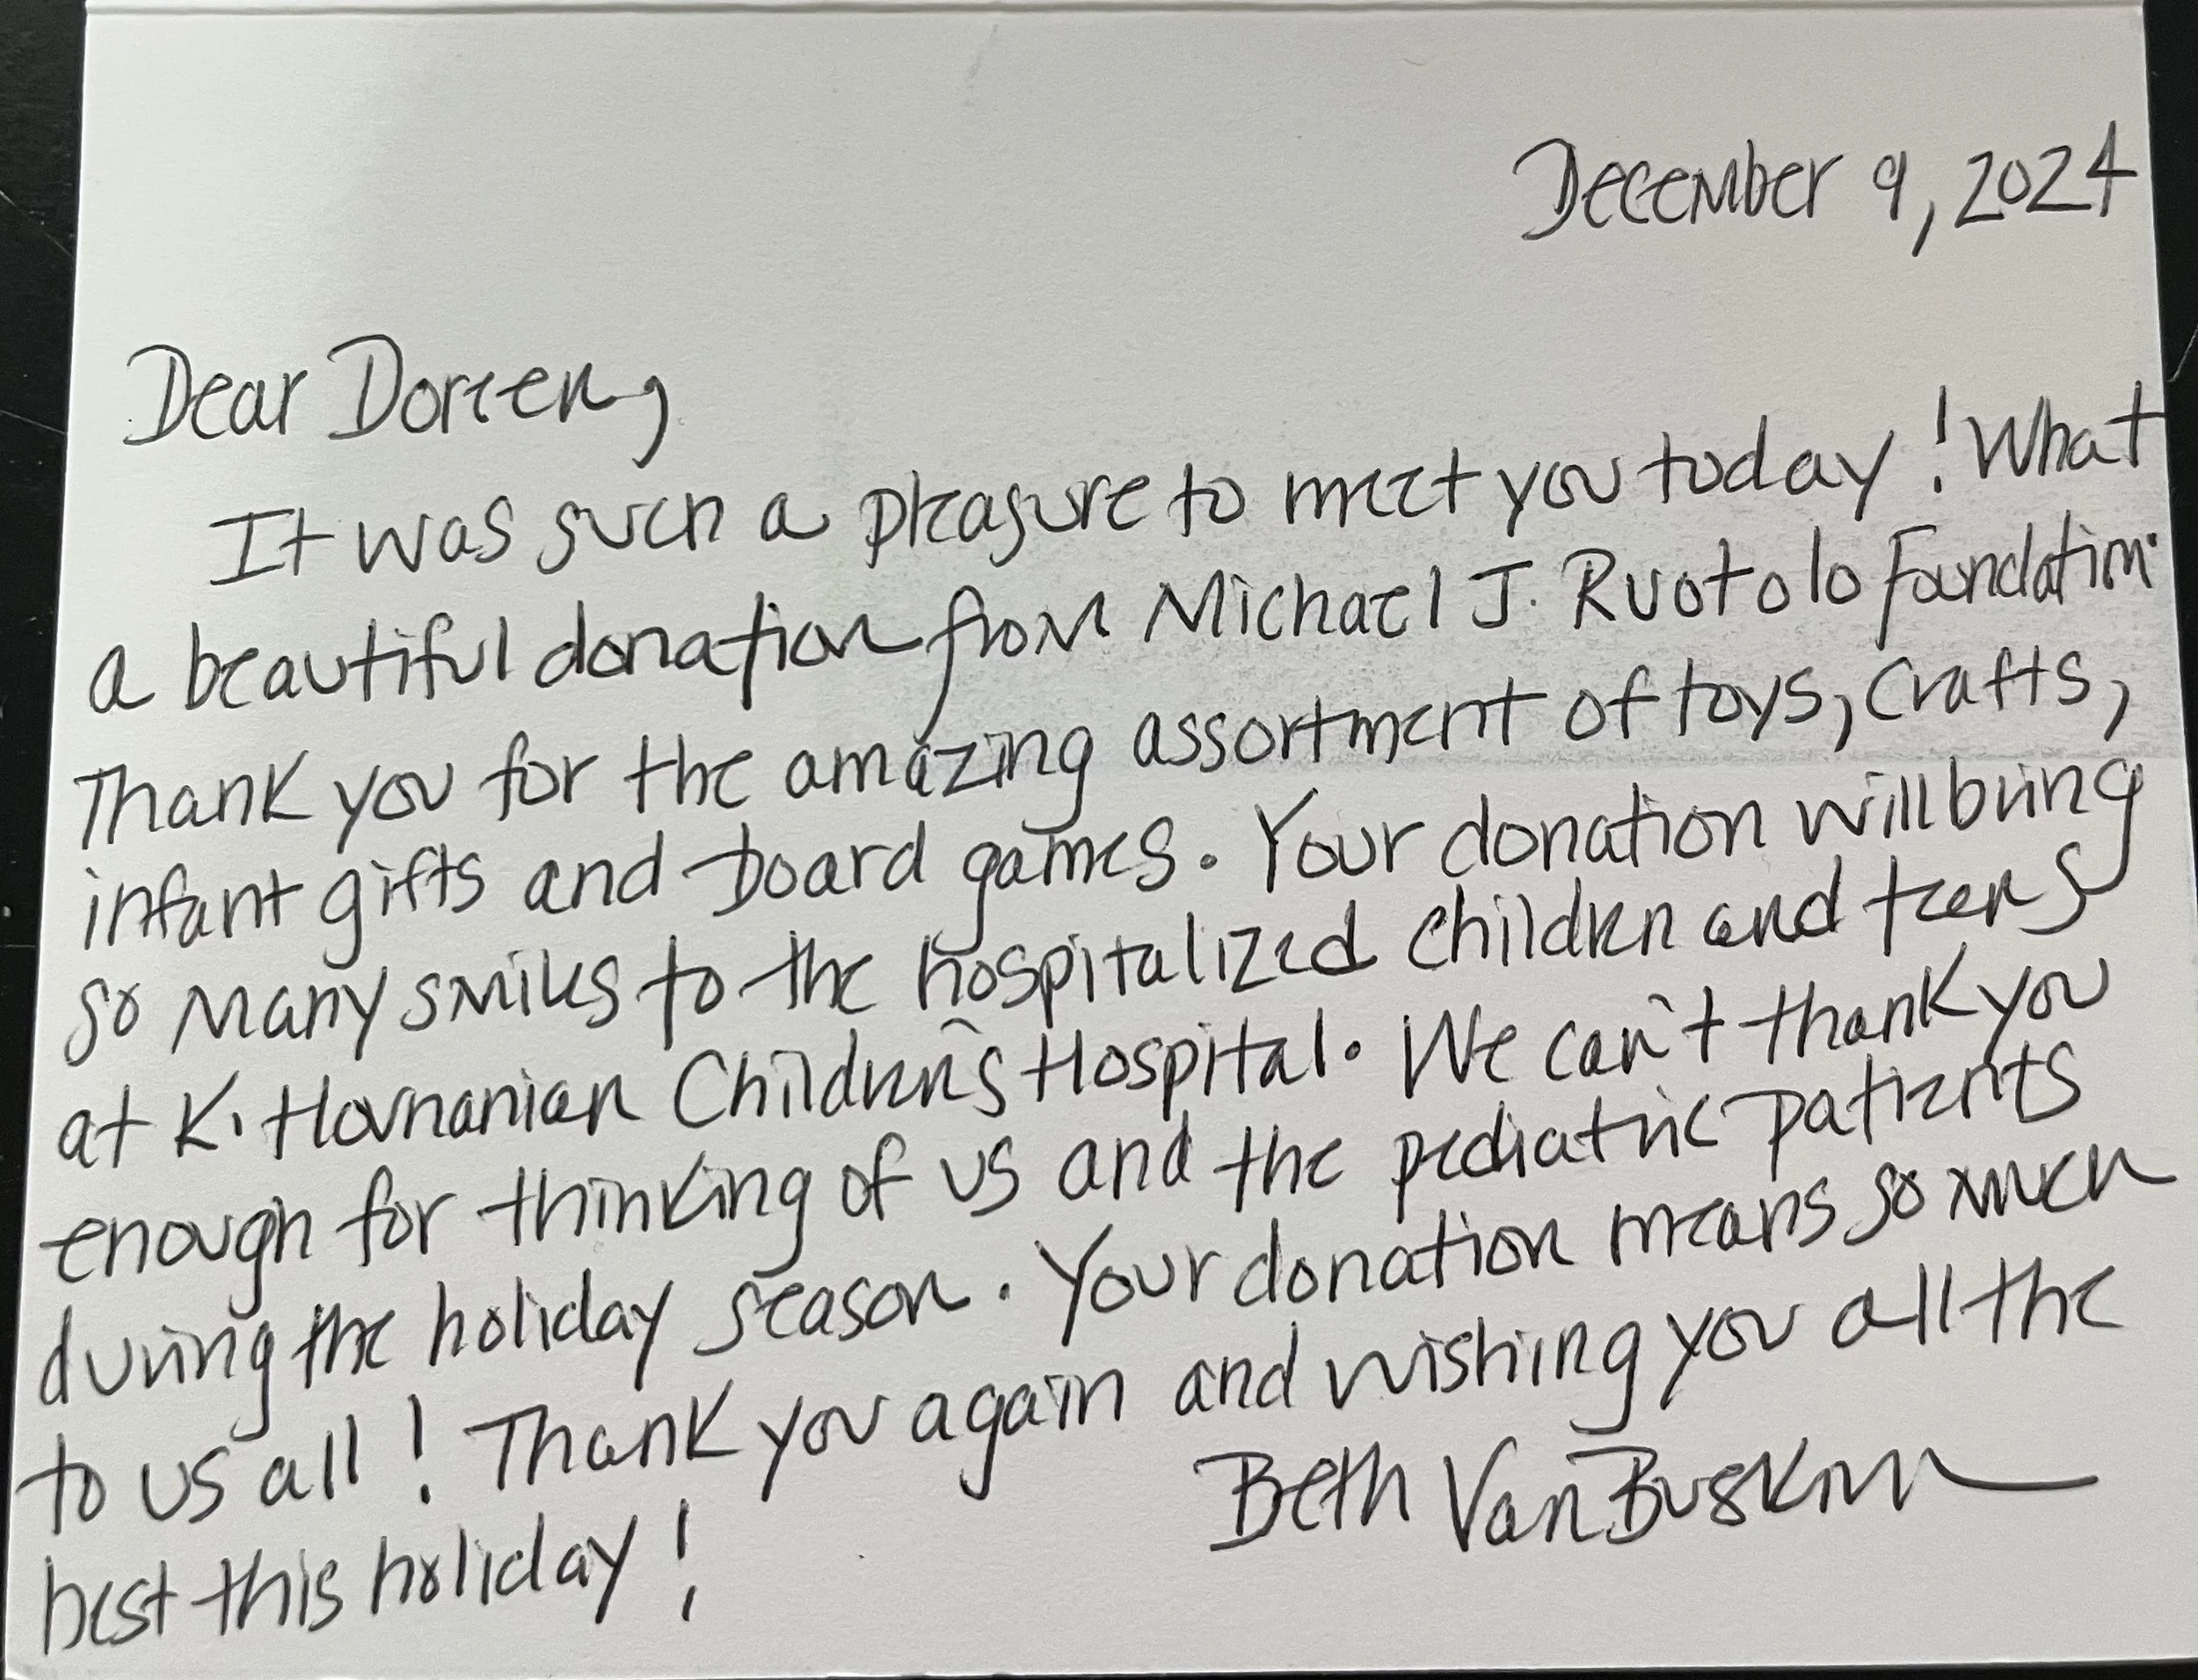 December 9, 2024
Dear Doreen,
It was such a pleasure to meet you today! What
a beautiful donation from Michael J. Ruotolo Foundation.
Thank you for the amazing assortment of toys, crafts,
infant gifts and board games. Your donation will bring
so many smiles to the hospitalized children and teens
at K. Hovnanian Children's Hospital. We can't thank you
enough for thinking of us and the pediatric patients
during the holiday season. Your donation means so much
to us all! Thank you again and wishing you all the
best this holiday!
Beth VanBuskirk